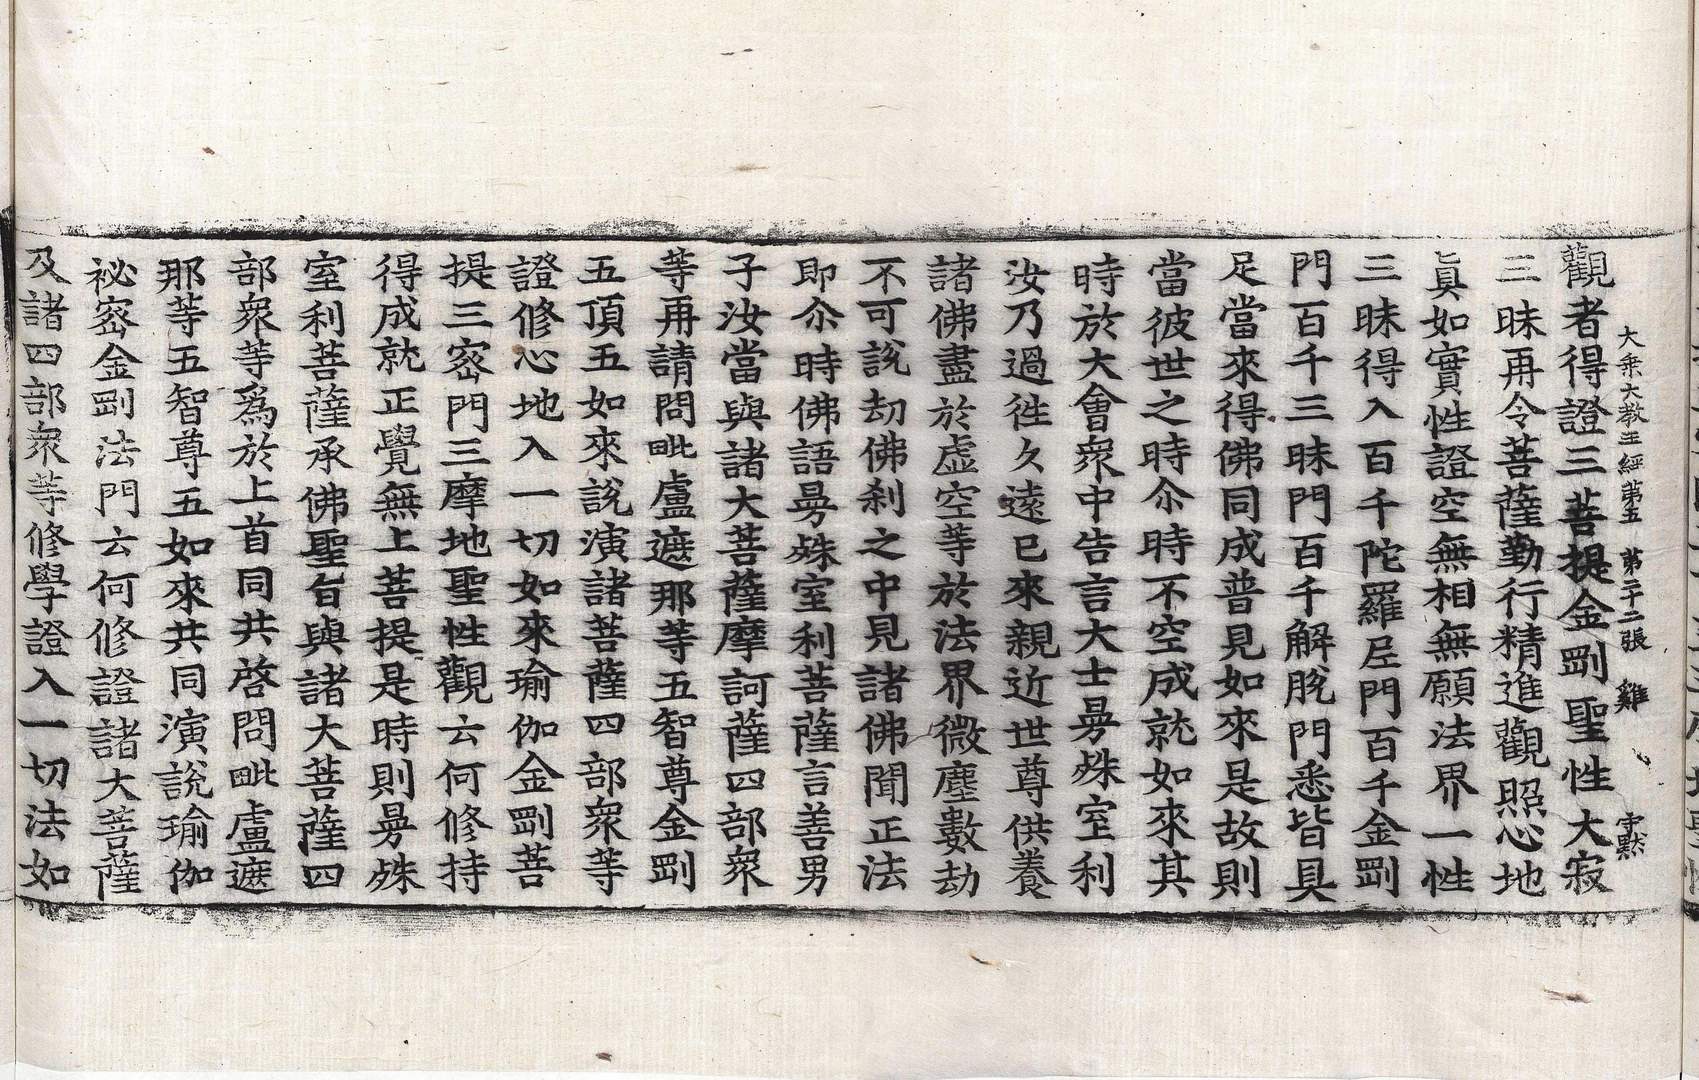 觀者得證三菩提金剛聖性大寂
大乘大教王經第五 第二十二張 雞 守黙
三昧再令菩薩勤行精進觀照心地
眞如實性證空無相無願法界一性
三昧得入百千陀羅尼門百千金剛
門百千三昧門百千解脫門悉皆具
足當來得佛同成普見如來是故則
當彼世之時尒時不空成就如來其
時於大會衆中告言大士曼殊室利
汝乃過徃久遠已來親近世尊供養
諸佛盡於虛空等於法界微塵數劫
不可說劫佛刹之中見諸佛聞正法
即尒時佛語曼殊室利菩薩言善男
子汝當與諸大菩薩摩訶薩四部衆
等再請問毗盧遮那等五智尊金剛
五頂五如來說演諸菩薩四部衆等
證修心地入一切如來瑜伽金剛菩
提三密門三摩地聖性觀云何修持
得成就正覺無上菩提是時則曼殊
室利菩薩承佛聖旨與諸大菩薩四
部衆等爲於上首同共啓問毗盧遮
那等五智尊五如來共同演說瑜伽
祕密金剛法門云何修證諸大菩薩
及諸四部衆等修學證入一切法如